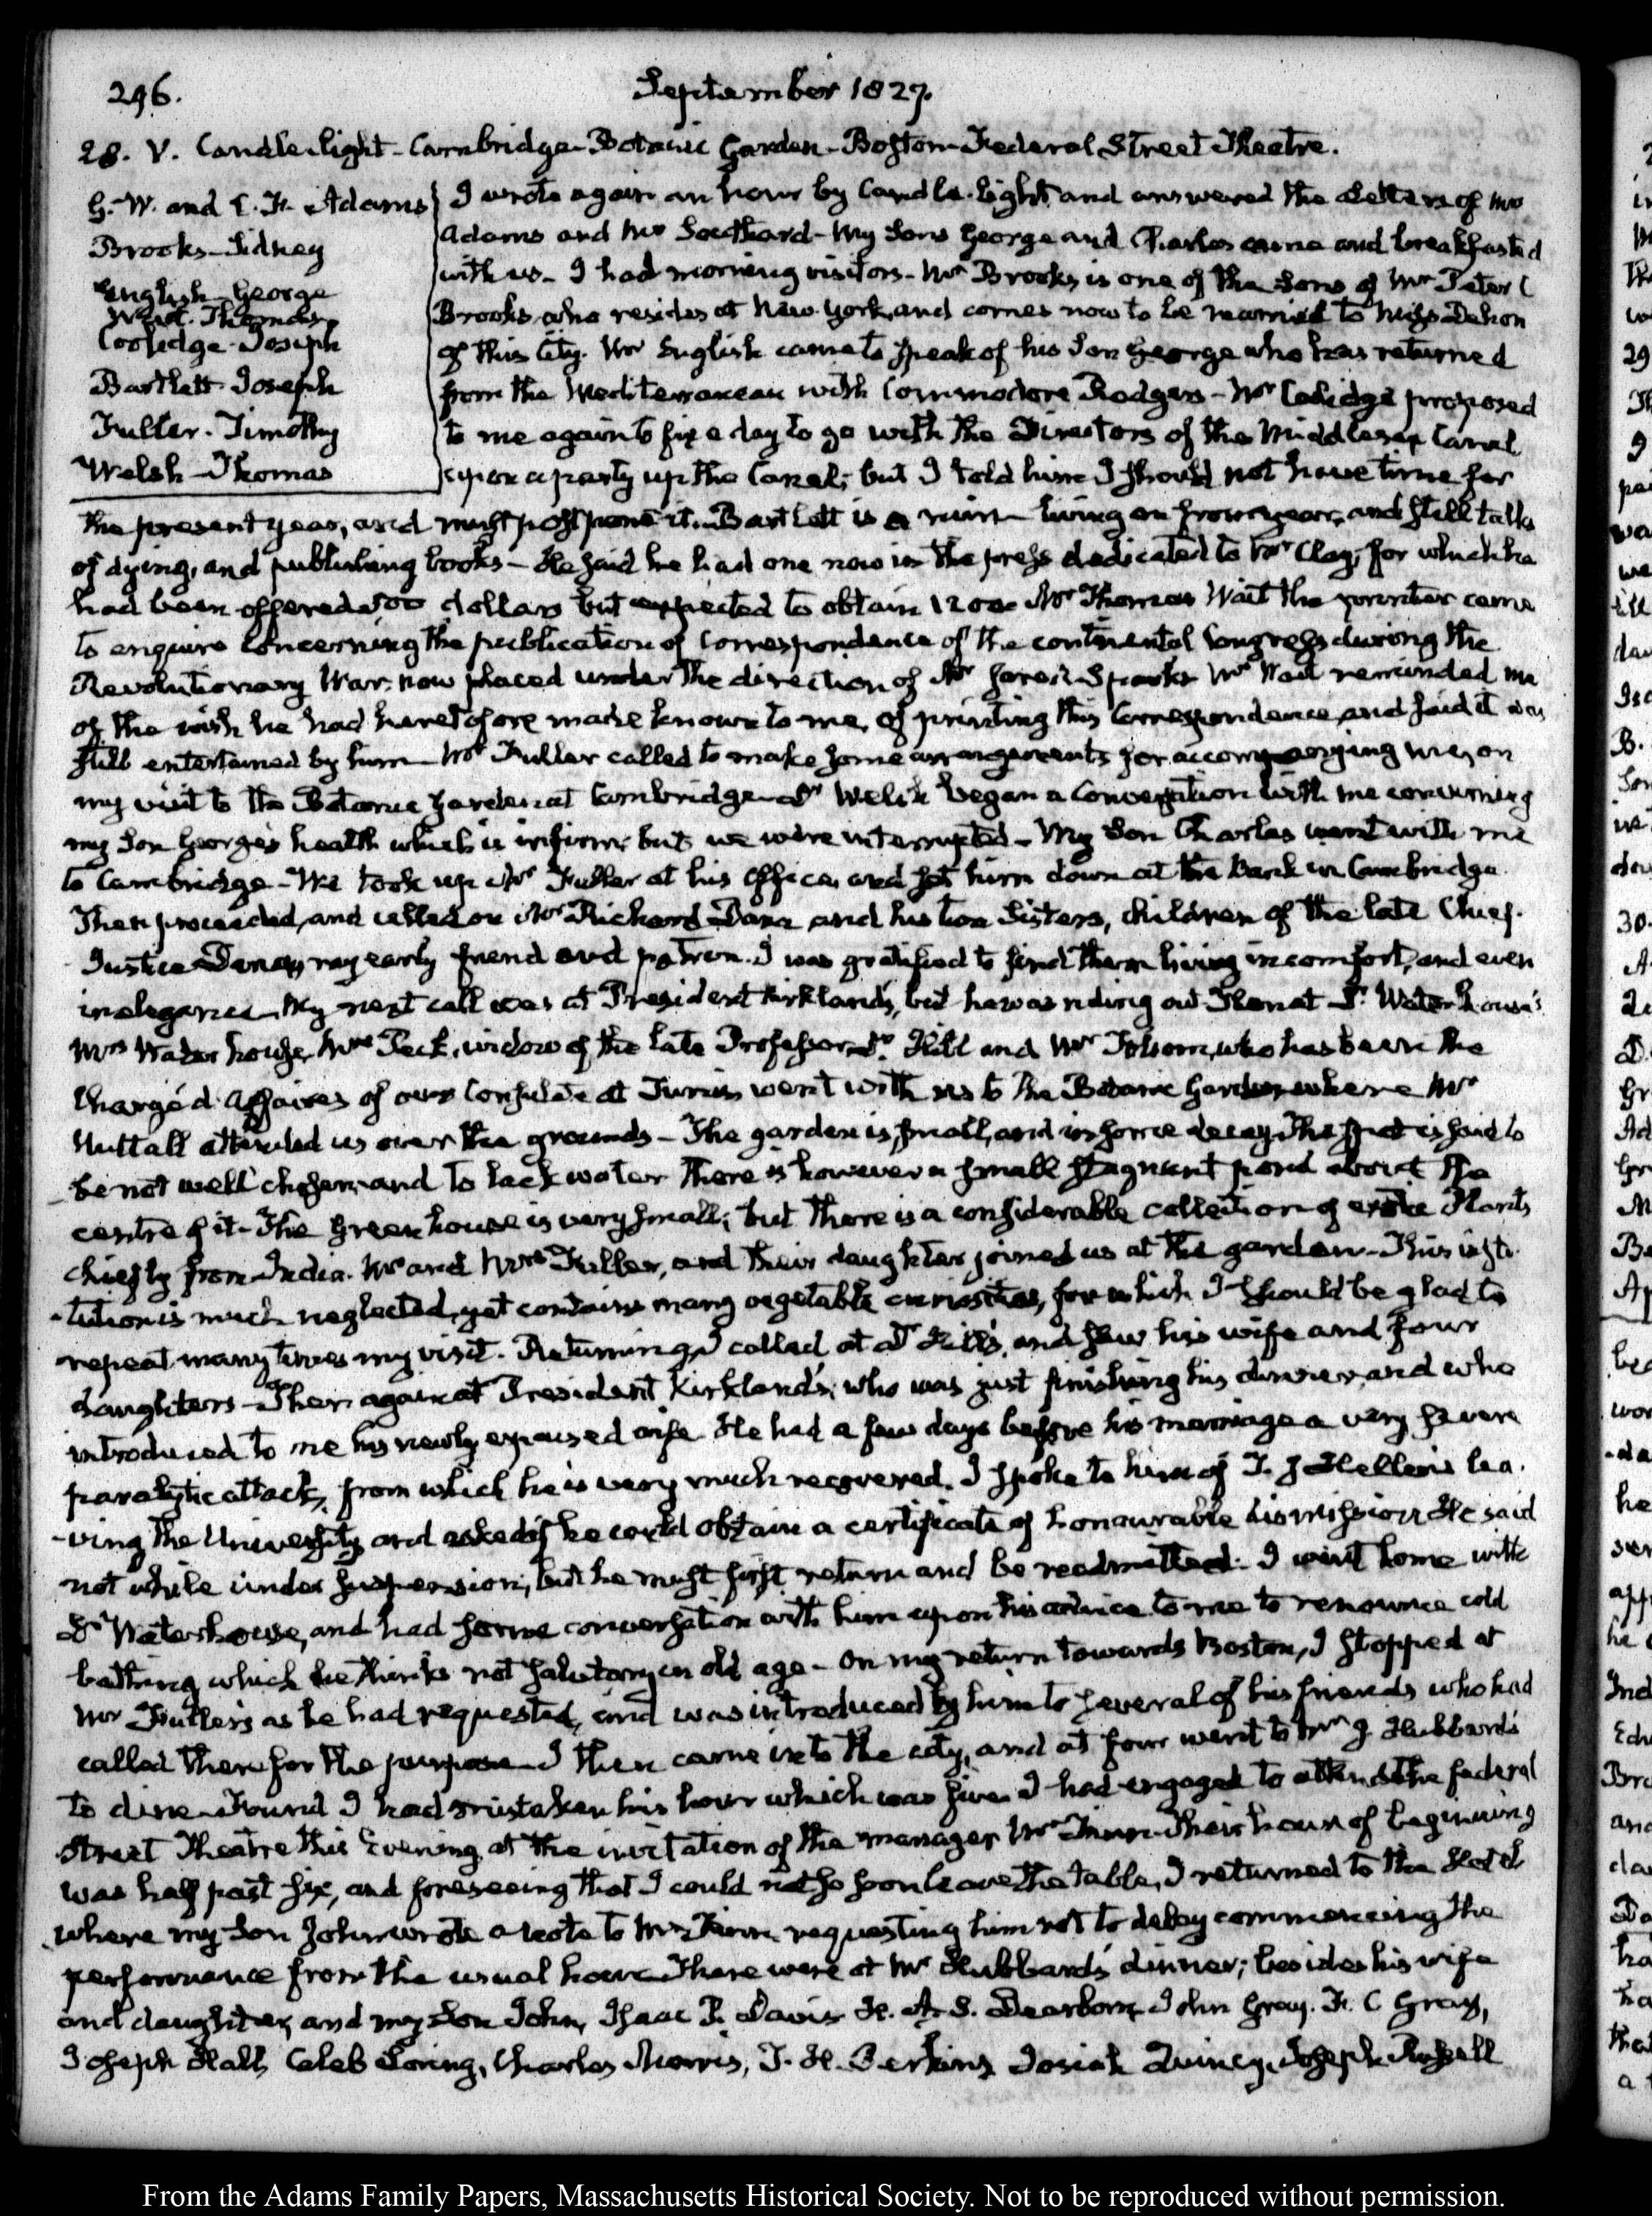 296.
September 1827.
28. V. Candle-light - Cambridge - Botanic Garden - Boston - Federal Street Theatre.
G. W. and C. F. Adams
Brooks - Sidney
English - George
Wait. Thomas
Coolidge - Joseph
Bartlett Joseph
Fuller. Timothy
Welsh - Thomas
I wrote again an hour by Candle-light and answered the Letters of Mrs
Adams and Mr Southard - My Sons George and Charles came and breakfasted
with us - I had morning visitors - Mr Brooks is one of the Sons of Mr Peter C
Brooks, who resides at New-York, and comes now to be married to Miss Dehon
of this City. Mr English came to speak of his Son George who has returned
from the Mediterranean with Commodore Rodgers - Mr Coolidge proposed
to me again to fix a day to go with the Directors of the Middlesex Canal
upon a party up the Canal; but I told him I should not have time for
the present year, and must postpone it. Bartlett is a ruin living on from year, and still talks
of dying, and publishing books - He said he had one now in the press dedicated to Mr Clay, for which he
had been offered 500 dollars but expected to obtain 1200 - Mr Thomas Wait the printer came
to enquire concerning the publication of Correspondence of the continental Congress during the
Revolutionary War, now placed under the direction of Mr Jared Sparks Mr Wait reminded me
of the wish he had heretofore made known to me, of printing this Correspondence, and said it was
still entertained by him - Mr Fuller called to make some arrangements for accompanying me, on
my visit to the Botanic Garden at Cambridge - Dr Welsh began a Conversation with me concerning
my Son George's health which is infirm; but we were interrupted - My Son Charles went with me
to Cambridge - We took up Mr Fuller at his Office, and set him down at the Bank in Cambridge.
Then proceeded, and called on Mr Richard Dana and his two Sisters, children of the late Chief-
Justice Dana, my early friend and patron. I was gratified to find them living in comfort, and even
in elegance - My next call was at President Kirkland's, but he was riding out - Then at Dr Waterhouse's
Mrs Waterhouse, Mrs Peck, widow of the late Professor, Dr Hill and Mr Folsom, who has been the
Chargé d'Affaires of our Consulate at Tunis went with us to the Botanic Garden where Mr
Nuttall attended us over the grounds - The garden is small, and in some decay. The spot is said to
be not well chosen, and to lack water There is however a small stagnant pond about the
centre of it - The Green house is very small; but there is a considerable collection of exotic Plants
chiefly from India. Mr and Mrs Fuller, and their daughter joined us at the garden - This insti-
-tution is much neglected, yet contains many vegetable curiosities, for which I should be glad to
repeat many times my visit. Returning, I called at Dr Hill's, and saw his wife and four
daughters - Then again at President Kirkland's, who was just finishing his dinner, and who
introduced to me his newly espoused wife He had a few days before his marriage a very severe
paralytic attack, from which he is very much recovered. I spoke to him of T. J Hellen's lea-
-ving the University and asked if he could obtain a certificate of honourable dismission He said
not while under suspension; but he must first return and be readmitted. I went home with
Dr Waterhouse, and had some conversation with him upon his advice to me to renounce cold
bathing which he thinks not salutary in old age - On my return towards Boston, I stopped at
Mr Fuller's as he had requested, and was introduced by him to several of his friends who had
called there for the purpose - I then came into the city, and at four went to Mr J. Hubbard's
to dine - Found I had mistaken his hour which was five. I had engaged to attend the federal
Street Theatre this Evening, at the invitation of the manager Mr Finn - Their hour of beginning
was half past six, and foreseeing that I could not so soon leave the table, I returned to the Hotel
where my Son John wrote a note to Mr Finn, requesting him not to delay commencing the
performance from the usual hour There were at Mr Hubbard's dinner; besides his wife
and daughter, and my Son John, Isaac P. Davis H. A. S. Dearborn, John Gray. F. C Gray,
Joseph Hall, Caleb Loring, Charles Morris, T. H. Perkins Josiah Quincy, Joseph Russell
From the Adams Family Papers, Massachusetts Historical Society. Not to be reproduced without permission.